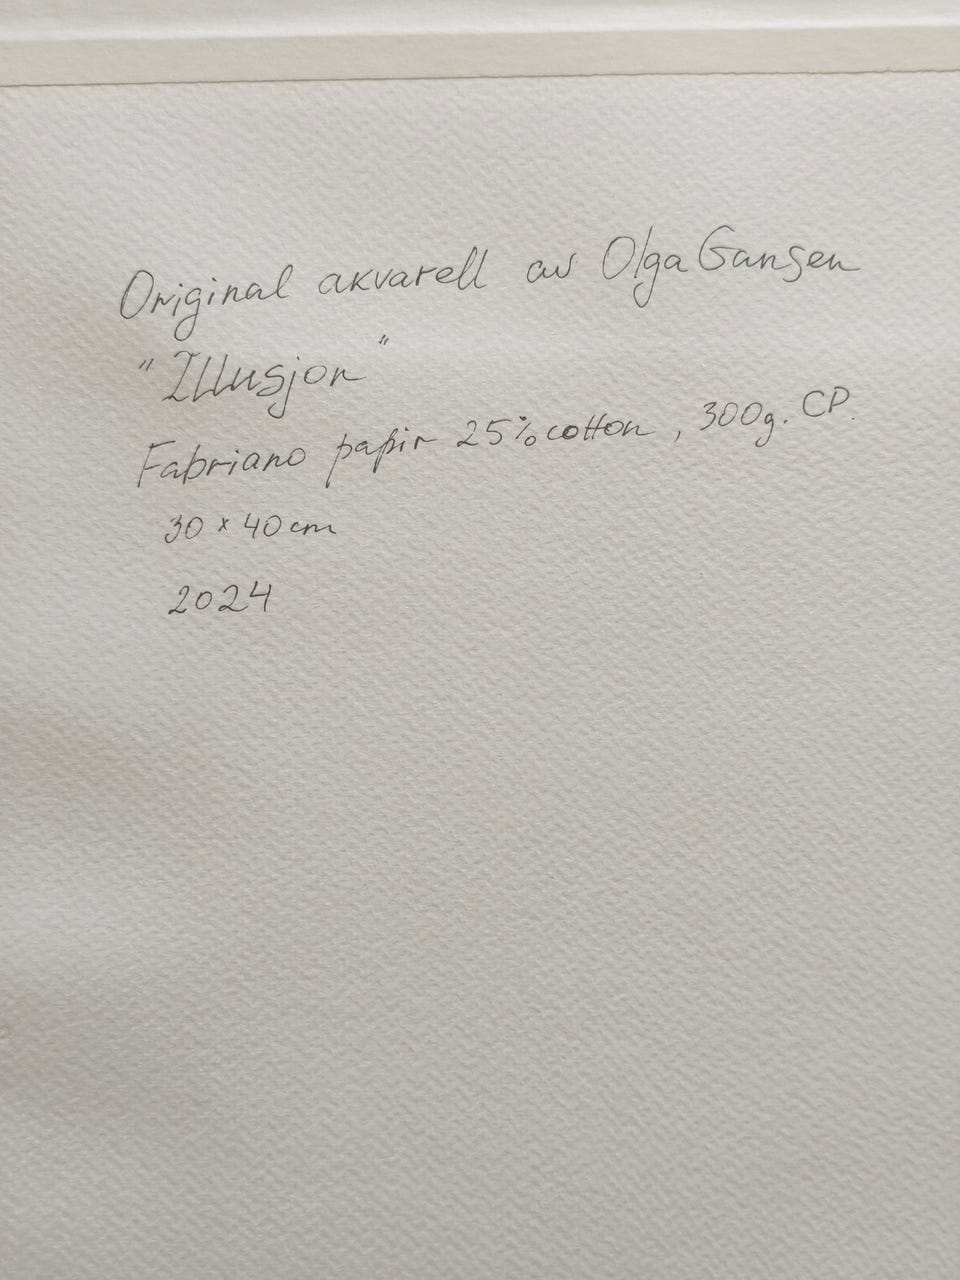 Original akvarell av Olga Gansen
"Illusjon"
Fabriano papir 25% cotton, 300g. CP.
30 x 40 cm
2024